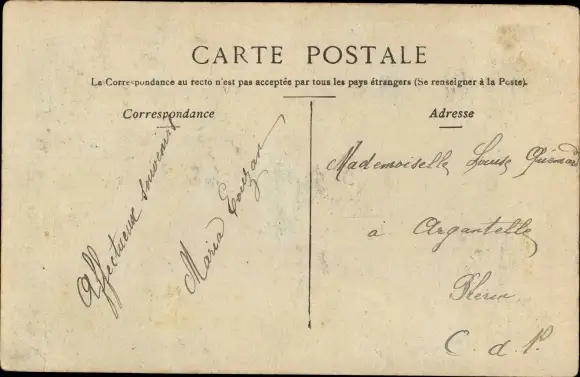 CARTE POSTALE
La Correspondance au recto n'est pas acceptée par tous les pays étrangers (Se renseigner à la Poste).
Correspondance
Adresse
Affectueux souvenir
Maria
Mademoiselle Louise
à Argantelle
C. d. N.